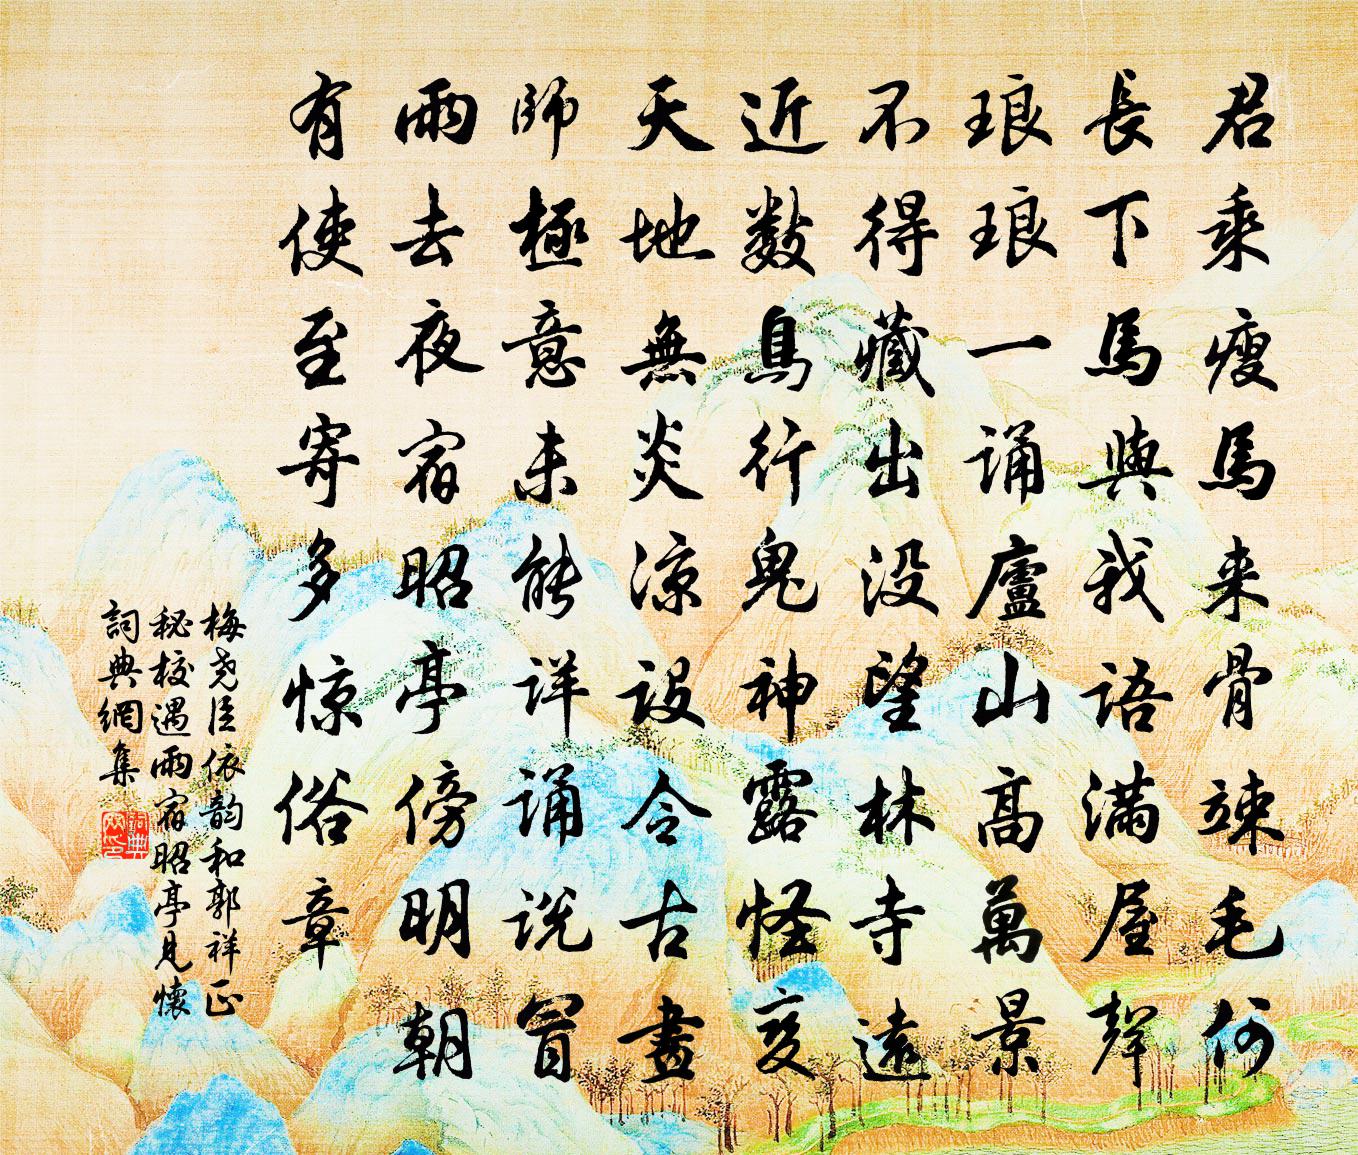 君乘瘦馬来骨竦毛何
長下馬與我語滿屋聲
琅琅一诵廬山高萬景
不得藏出没望林寺遠
近數鳥行鬼神露怪变
天地無炎凉设令古畫
師極意未能详诵说冒
雨去夜宿昭亭傍明朝
有使至寄多惊俗章
梅尧臣依韵和郭祥正
秘校遇雨宿昭亭見懷
詞典網集